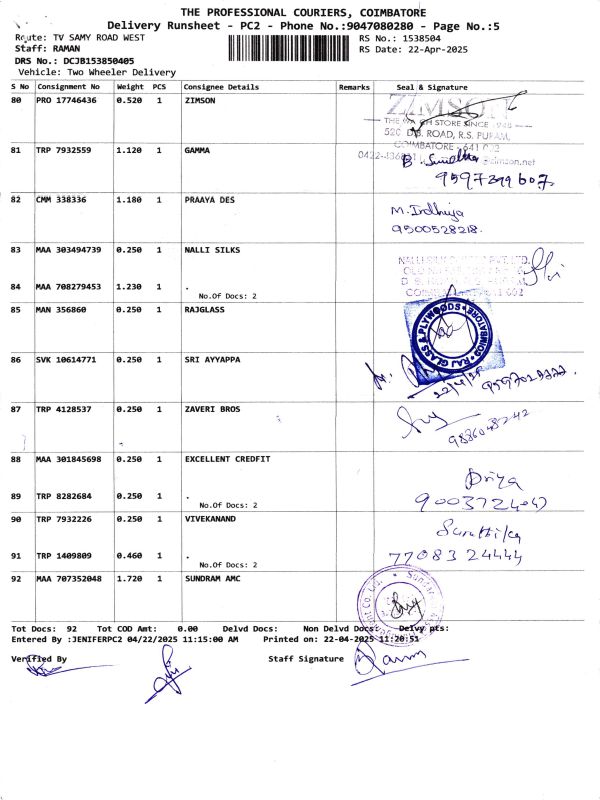 THE PROFESSIONAL COURIERS, COIMBATORE
Delivery Runsheet - PC2 - Phone No.:9047080280 - Page No.:5
Route: TV SAMY ROAD WEST
RS No.: 1538504
Staff: RAMAN
RS Date: 22-Apr-2025
DRS No.: DCJB153850405
Vehicle: Two Wheeler Delivery
S No Consignment No Weight PCS Consignee Details Remarks Seal & Signature
80 PRO 17746436 0.520 1 ZIMSON
ZIMSON
THE WATCH STORE SINCE 1948
52C D.B. ROAD, R.S. PURAM,
COIMBATORE - 641 002
81 TRP 7932559 1.120 1 GAMMA
9597299607
82 CMM 338336 1.180 1 PRAAYA DES
M. Irdhuja
9500528218.
83 MAA 303494739 0.250 1 NALLI SILKS
84 MAA 708279453 1.230 1 .
No.Of Docs: 2
85 MAN 356860 0.250 1 RAJGLASS
RAJ GLASS & PLYWOODS COIMBATORE
86 SVK 10614771 0.250 1 SRI AYYAPPA
22/4/25
87 TRP 4128537 0.250 1 ZAVERI BROS
9886048242
88 MAA 301845698 0.250 1 EXCELLENT CREDFIT
Priya
89 TRP 8282684 0.250 1 .
No.Of Docs: 2
90 TRP 7932226 0.250 1 VIVEKANAND
Suruthika
91 TRP 1409809 0.460 1 .
No.Of Docs: 2
77083 24444
92 MAA 707352048 1.720 1 SUNDRAM AMC
Tot Docs: 92 Tot COD Amt: 0.00 Delvd Docs: Non Delvd Docs: Delvy pts:
Entered By :JENIFERPC2 04/22/2025 11:15:00 AM Printed on: 22-04-2025 11:20:51
Verified By
Staff Signature
Raman